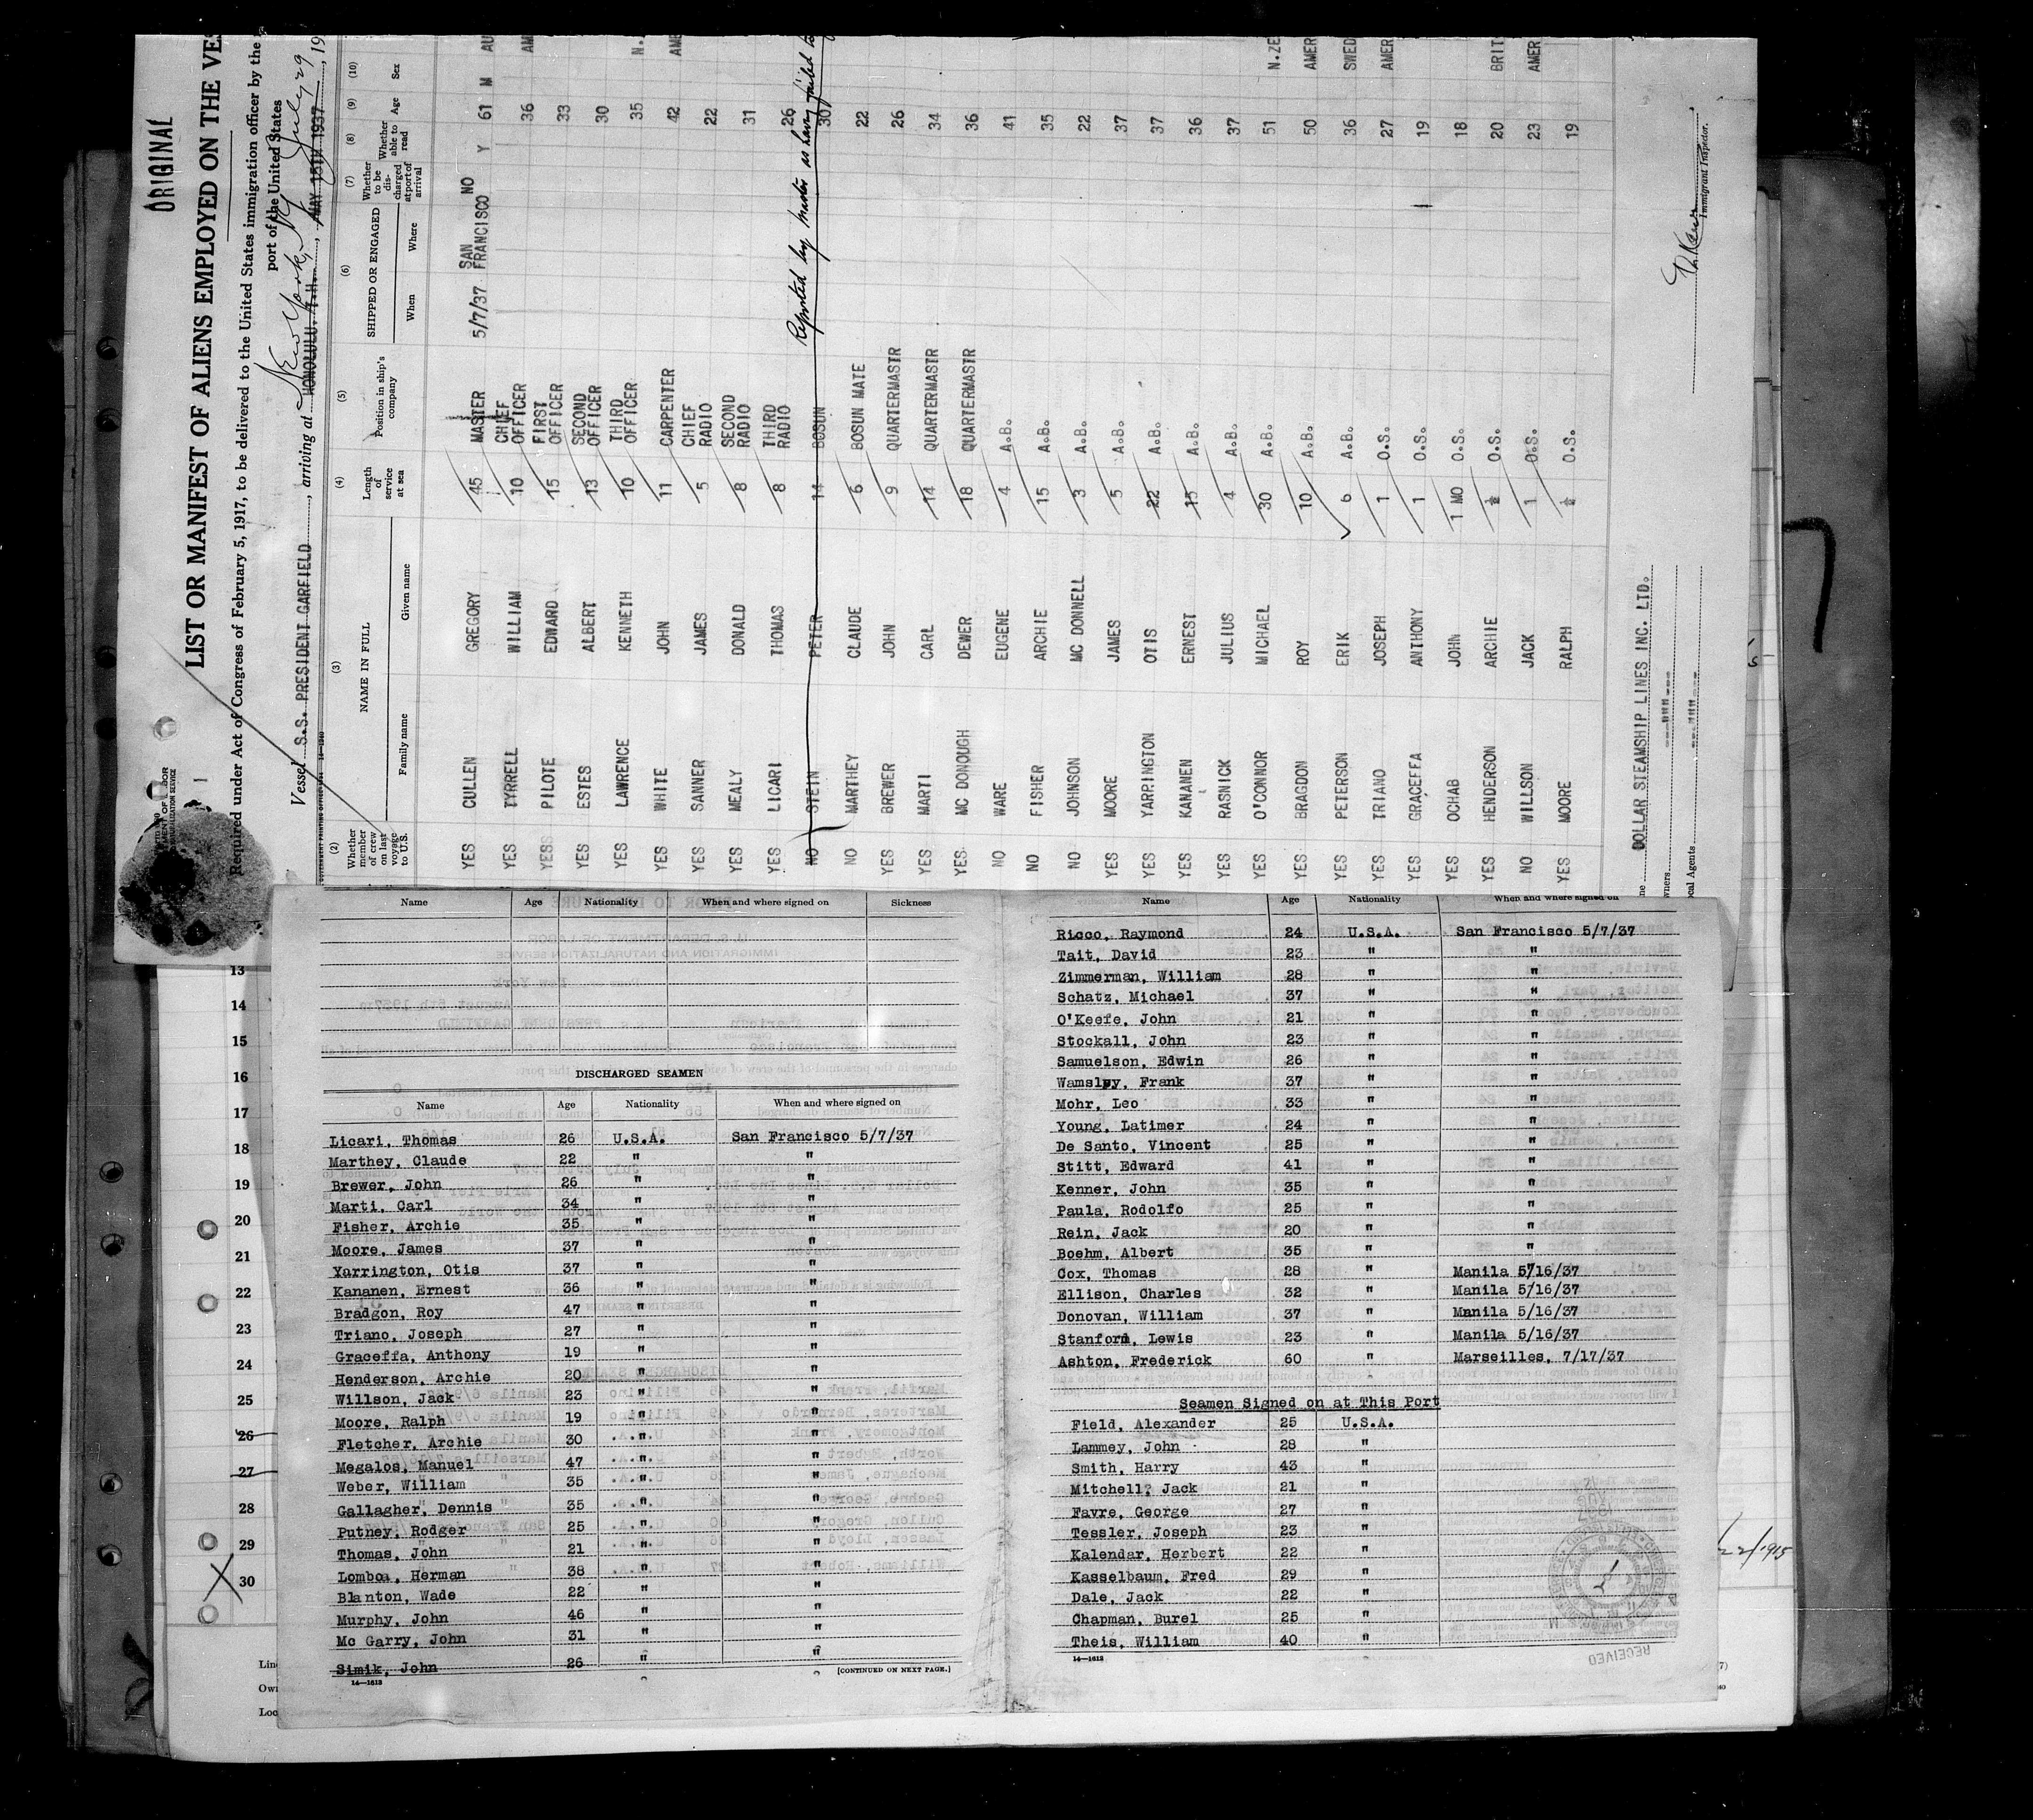 ORIGINAL
LIST OR MANIFEST OF ALIENS EMPLOYED ON THE
Required under Act of Congress of February 5, 1917, to be delivered to the United States immigration officer by the
port of the United States
Vessel S.S. PRESIDENT GARFIELD, arriving at HONOLULU, T.H., MAY 15TH 1937, 19
New York, N.Y. July 29
(2) (3) (4) (5) (6) (7) (8) (9) (10)
Whether member of crew on last voyage to U.S. NAME IN FULL Length of service at sea Position in ship's company SHIPPED OR ENGAGED Whether to be discharged at port of arrival Whether able to read Age Sex
Family name Given name When Where
YES CULLEN GREGORY 45 MASTER 5/7/37 SAN FRANCISCO NO Y 61 M AU
YES TYRRELL WILLIAM 10 CHIEF OFFICER 36 AM
YES PILOTE EDWARD 15 FIRST OFFICER 33
YES ESTES ALBERT 13 SECOND OFFICER 30
YES LAWRENCE KENNETH 10 THIRD OFFICER 35 N.Z
YES WHITE JOHN 11 CARPENTER 42 AME
YES SANNER JAMES 5 CHIEF RADIO 22
YES MEALY DONALD 8 SECOND RADIO 31
YES LICARI THOMAS 8 THIRD RADIO 26
NO STEIN PETER 14 BOSUN 30
Reported by Master as having failed to
NO MARTHEY CLAUDE 6 BOSUN MATE 22
YES BREWER JOHN 9 QUARTERMASTR 26
YES MARTI CARL 14 QUARTERMASTR 34
YES MC DONOUGH DEWER 18 QUARTERMASTR 36
NO WARE EUGENE 4 A.B. 41
NO FISHER ARCHIE 15 A.B. 35
NO JOHNSON MC DONNELL 3 A.B. 22
YES MOORE JAMES 5 A.B. 37
YES YARRINGTON OTIS 22 A.B. 37
YES KANANEN ERNEST 15 A.B. 36
YES RASNICK JULIUS 4 A.B. 37
YES O'CONNOR MICHAEL 30 A.B. 51 N.ZE
YES BRAGDON ROY 10 A.B. 50 AMER
YES PETERSON ERIK 6 A.B. 36 SWED
YES TRIANO JOSEPH 1 O.S. 27 AMER
YES GRACEFFA ANTHONY 1 O.S. 19
YES OCHAB JOHN 1 MO O.S. 18
YES HENDERSON ARCHIE ½ O.S. 20 BRIT
NO WILLSON JACK 1 O.S. 23 AMER
YES MOORE RALPH ½ O.S. 19
DOLLAR STEAMSHIP LINES INC. LTD.
wners
ocal Agents
Immigrant Inspector.
13
14
15
16
17
18
19
20
21
22
23
24
25
26
27
28
29
30
Name Age Nationality When and where signed on Sickness
DISCHARGED SEAMEN
Name Age Nationality When and where signed on
Licari, Thomas 26 U.S.A. San Francisco 5/7/37
Marthey, Claude 22 " "
Brewer, John 26 " "
Marti, Carl 34 " "
Fisher, Archie 35 " "
Moore, James 37 " "
Yarrington, Otis 37 " "
Kananen, Ernest 36 " "
Bradgon, Roy 47 " "
Triano, Joseph 27 " "
Graceffa, Anthony 19 " "
Henderson, Archie 20 " "
Willson, Jack 23 " "
Moore, Ralph 19 " "
Fletcher, Archie 30 " "
Megalos, Manuel 47 " "
Weber, William 35 " "
Gallagher, Dennis 35 " "
Putney, Rodger 25 " "
Thomas, John 21 " "
Lomboa, Herman 38 " "
Blanton, Wade 22 " "
Murphy, John 46 " "
Mc Garry, John 31 " "
Simik, John 26 " "
14—1613
[CONTINUED ON NEXT PAGE.]
Name Age Nationality When and where signed on
Ricco, Raymond 24 U.S.A. San Francisco 5/7/37
Tait, David 23 " "
Zimmerman, William 28 " "
Schatz, Michael 37 " "
O'Keefe, John 21 " "
Stockall, John 23 " "
Samuelson, Edwin 26 " "
Wamsley, Frank 37 " "
Mohr, Leo 33 " "
Young, Latimer 24 " "
De Santo, Vincent 25 " "
Stitt, Edward 41 " "
Kenner, John 35 " "
Paula, Rodolfo 25 " "
Rein, Jack 20 " "
Boehm, Albert 35 " "
Cox, Thomas 28 " Manila 5/16/37
Ellison, Charles 32 " Manila 5/16/37
Donovan, William 37 " Manila 5/16/37
Stanford, Lewis 23 " Manila 5/16/37
Ashton, Frederick 60 " Marseilles, 7/17/37
Seamen Signed on at This Port
Field, Alexander 25 U.S.A.
Lammey, John 28 "
Smith, Harry 43 "
Mitchell, Jack 21 "
Favre, George 27 "
Tessler, Joseph 23 "
Kalendar, Herbert 22 "
Kasselbaum, Fred 29 "
Dale, Jack 22 "
Chapman, Burel 25 "
Theis, William 40 "
14—1613
RECEIVED
Lin
Own
Loc